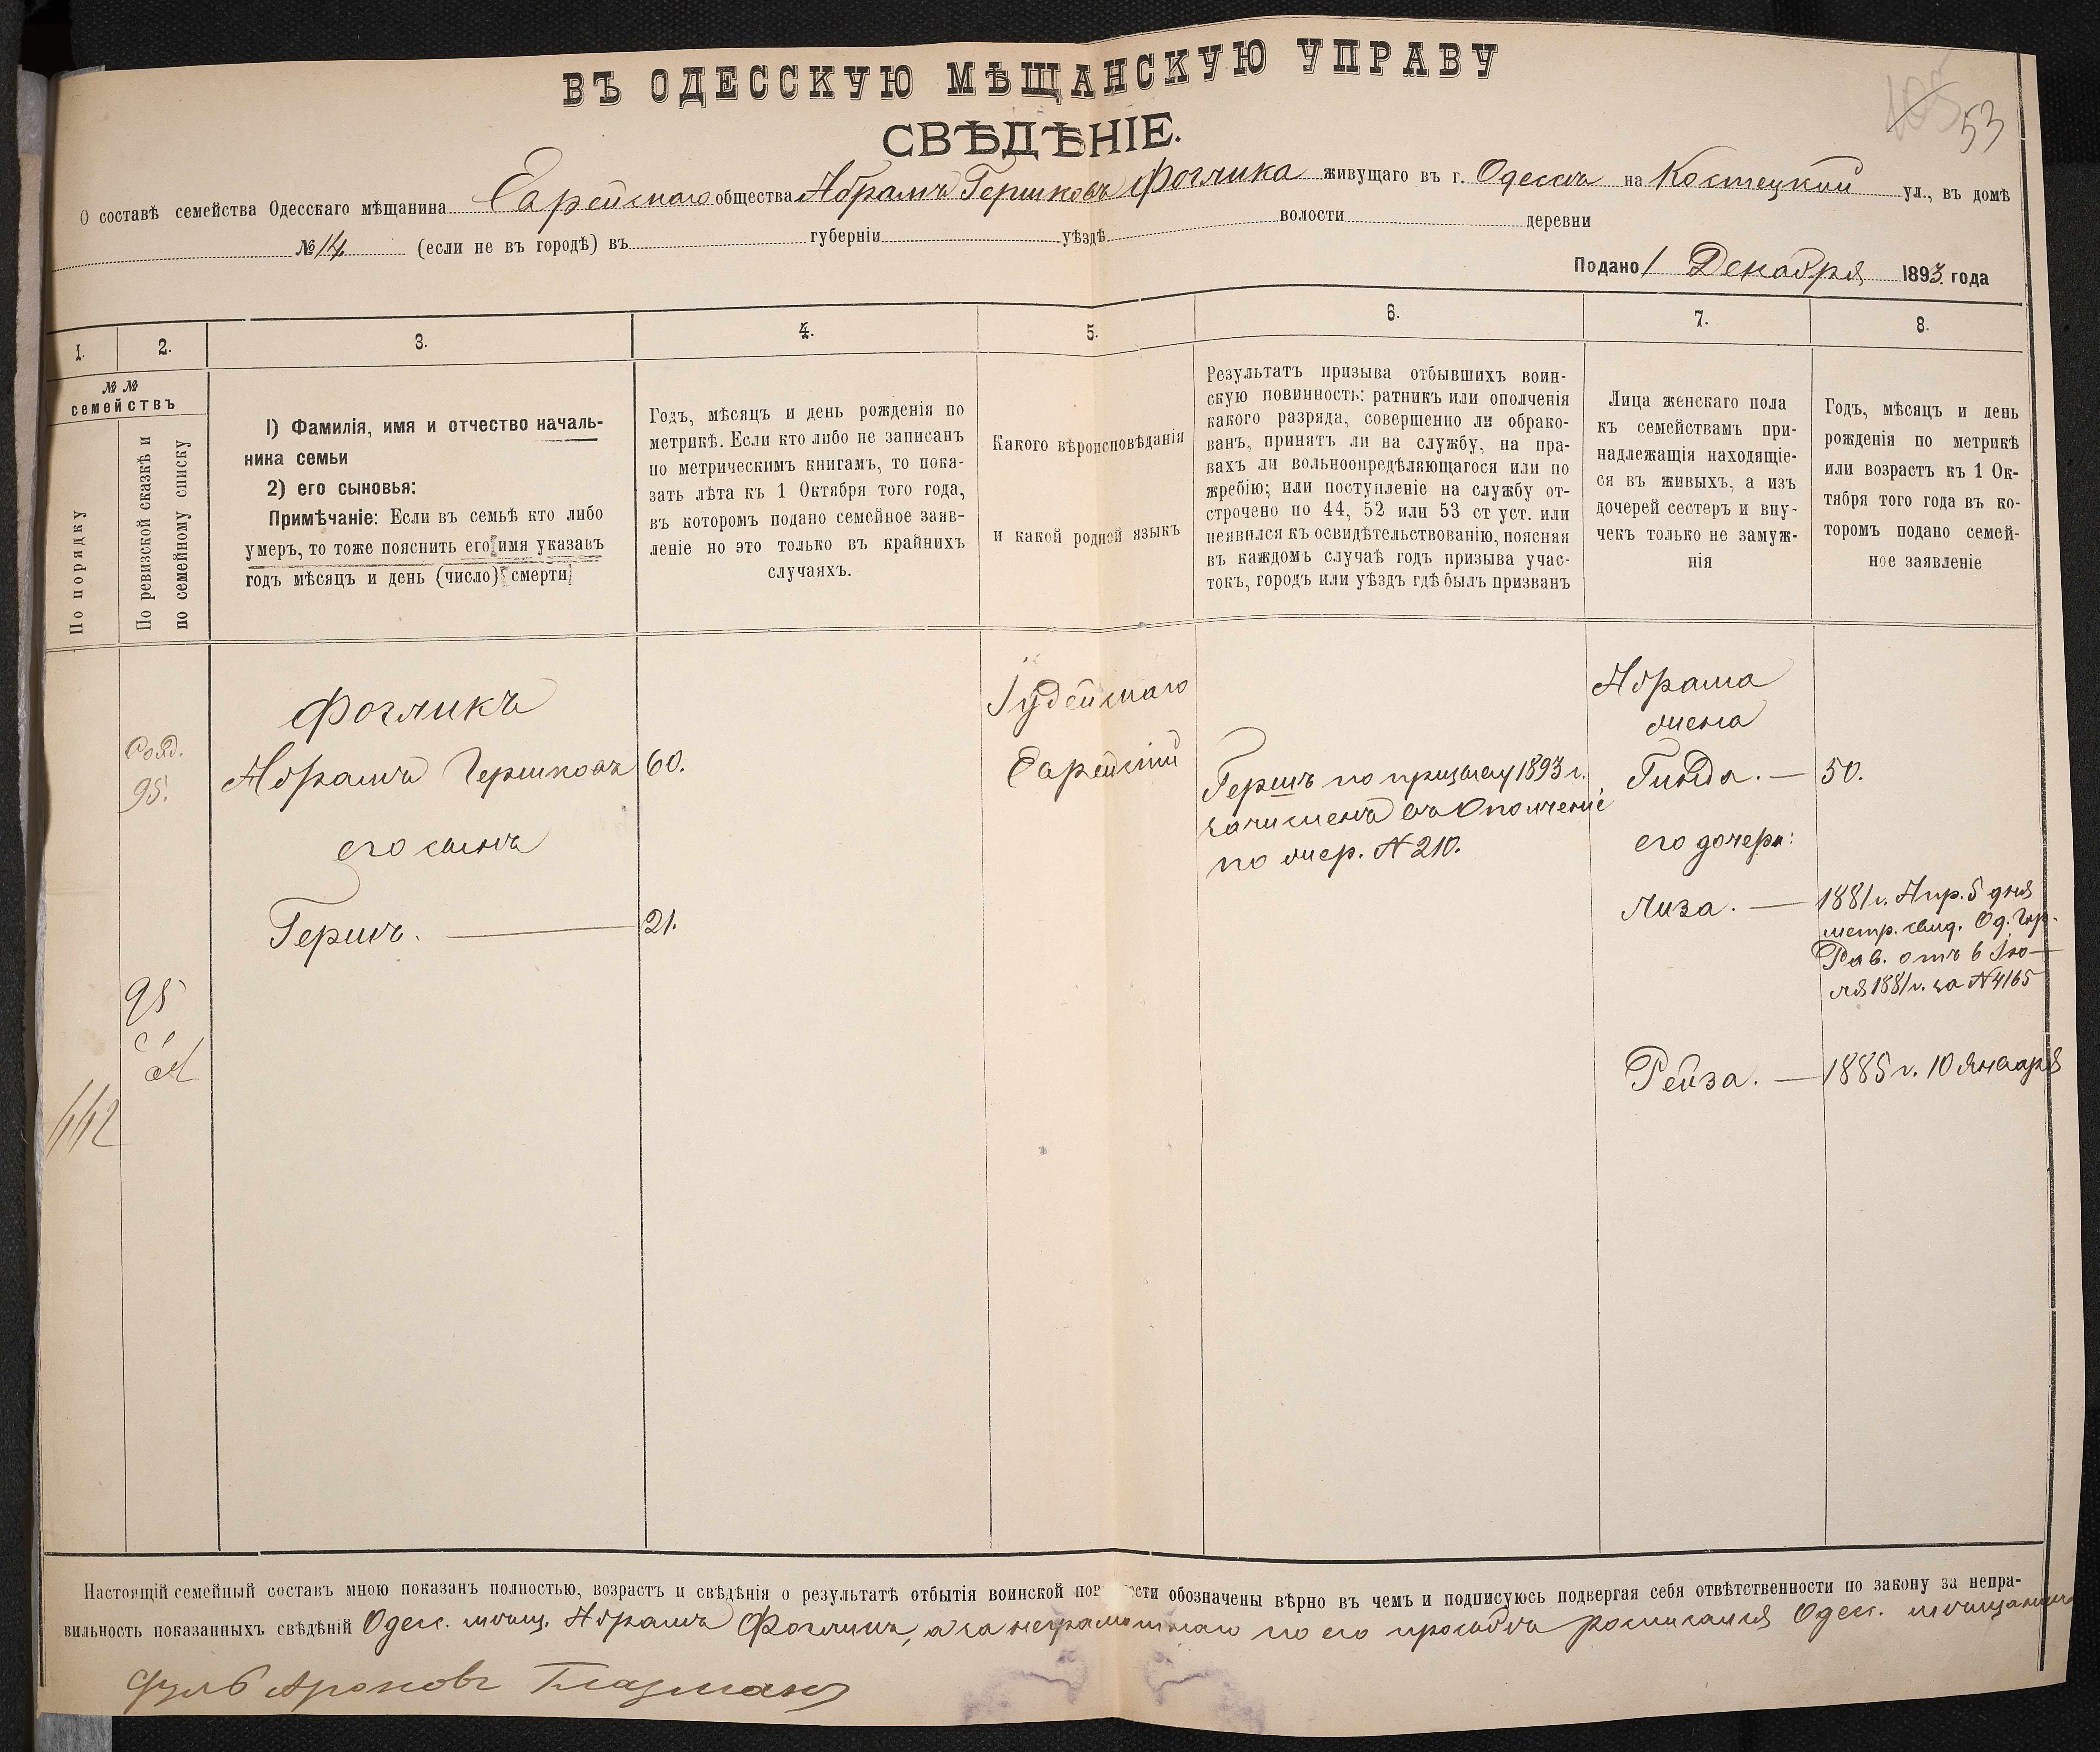 ВЪ ОДЕССКУЮ МѢЩАНСКУЮ УПРАВУ
105 53
СВѢДѢНІЕ.
О составѣ семейства Одесскаго мѣщанина Еврейскаго общества Абрамъ Гершковъ Фоглика живущаго въ г. Одессѣ на Костецкой ул., въ домѣ
№ 14 (если не въ городѣ) въ губерніи уѣздѣ волости деревни
Подано 1 Декабря 1893 года
1. 2. 3. 4. 5. 6. 7. 8.
№ №
семействъ
По порядку
По ревизской сказкѣ и
по семейному списку
1) Фамилія, имя и отчество началь-
ника семьи
2) его сыновья:
Примѣчаніе: Если въ семьѣ кто либо
умеръ, то тоже пояснить его имя указавъ
годъ мѣсяцъ и день (число) смерти
Годъ, мѣсяцъ и день рожденія по
метрикѣ. Если кто либо не записанъ
по метрическимъ книгамъ, то пока-
зать лѣта къ 1 Октября того года,
въ которомъ подано семейное заяв-
леніе но это только въ крайнихъ
случаяхъ.
Какого вѣроисповѣданія
и какой родной языкъ
Результатъ призыва отбывшихъ воин-
скую повинность: ратникъ или ополченія
какого разряда, совершенно ли обрако-
ванъ, принятъ ли на службу, на пра-
вахъ ли вольноопредѣляющагося или по
жребію; или поступленіе на службу от-
строчено по 44, 52 или 53 ст уст. или
неявился къ освидѣтельствованію, поясняя
въ каждомъ случаѣ годъ призыва учас-
токъ, городъ или уѣздъ гдѣ былъ призванъ
Лица женскаго пола
къ семействамъ при-
надлежащія находящіе-
ся въ живыхъ, а изъ
дочерей сестеръ и вну-
чекъ только не замуж-
нія
Годъ, мѣсяцъ и день
рожденія по метрикѣ
или возрастъ къ 1 Ок-
тября того года въ ко-
торомъ подано семей-
ное заявленіе
95.
95
442
Фогликъ
Абрамъ Гершковъ 60.
его сынъ
Гершъ. 21.
Іудейскаго
Еврейскій
Гершъ по призыву 1893 г.
зачисленъ въ Ополченіе
по жер. № 210.
Абрама
жена
Гинда. — 50.
его дочери:
Лиза. — 1881 г. Апр. 5 дня
метр. свид. Од. Гор.
Рав. отъ 6 Ію-
ля 1881 г. за № 4165
Рейза. — 1885 г. 10 Января
Настоящій семейный составъ мною показанъ полностью, возрастъ и свѣдѣнія о результатѣ отбытія воинской пов сти обозначены вѣрно въ чемъ и подписуюсь подвергая себя отвѣтственности по закону за непра-
вильность показанныхъ свѣдѣній Одес. мѣщ. Абрамъ Фогликъ, а за неграмотнаго по его просьбѣ росписался Одес. мѣщанинъ
Ароновъ